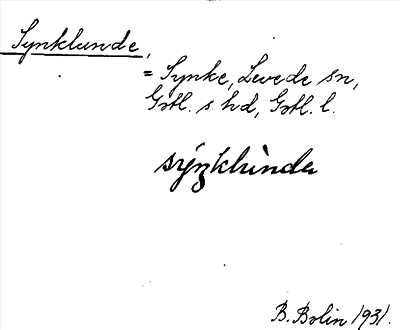 Synklunde,
= Synke, Levede sn,
Gotl. s. hd, Gotl. l.
B. Bolin 1931.